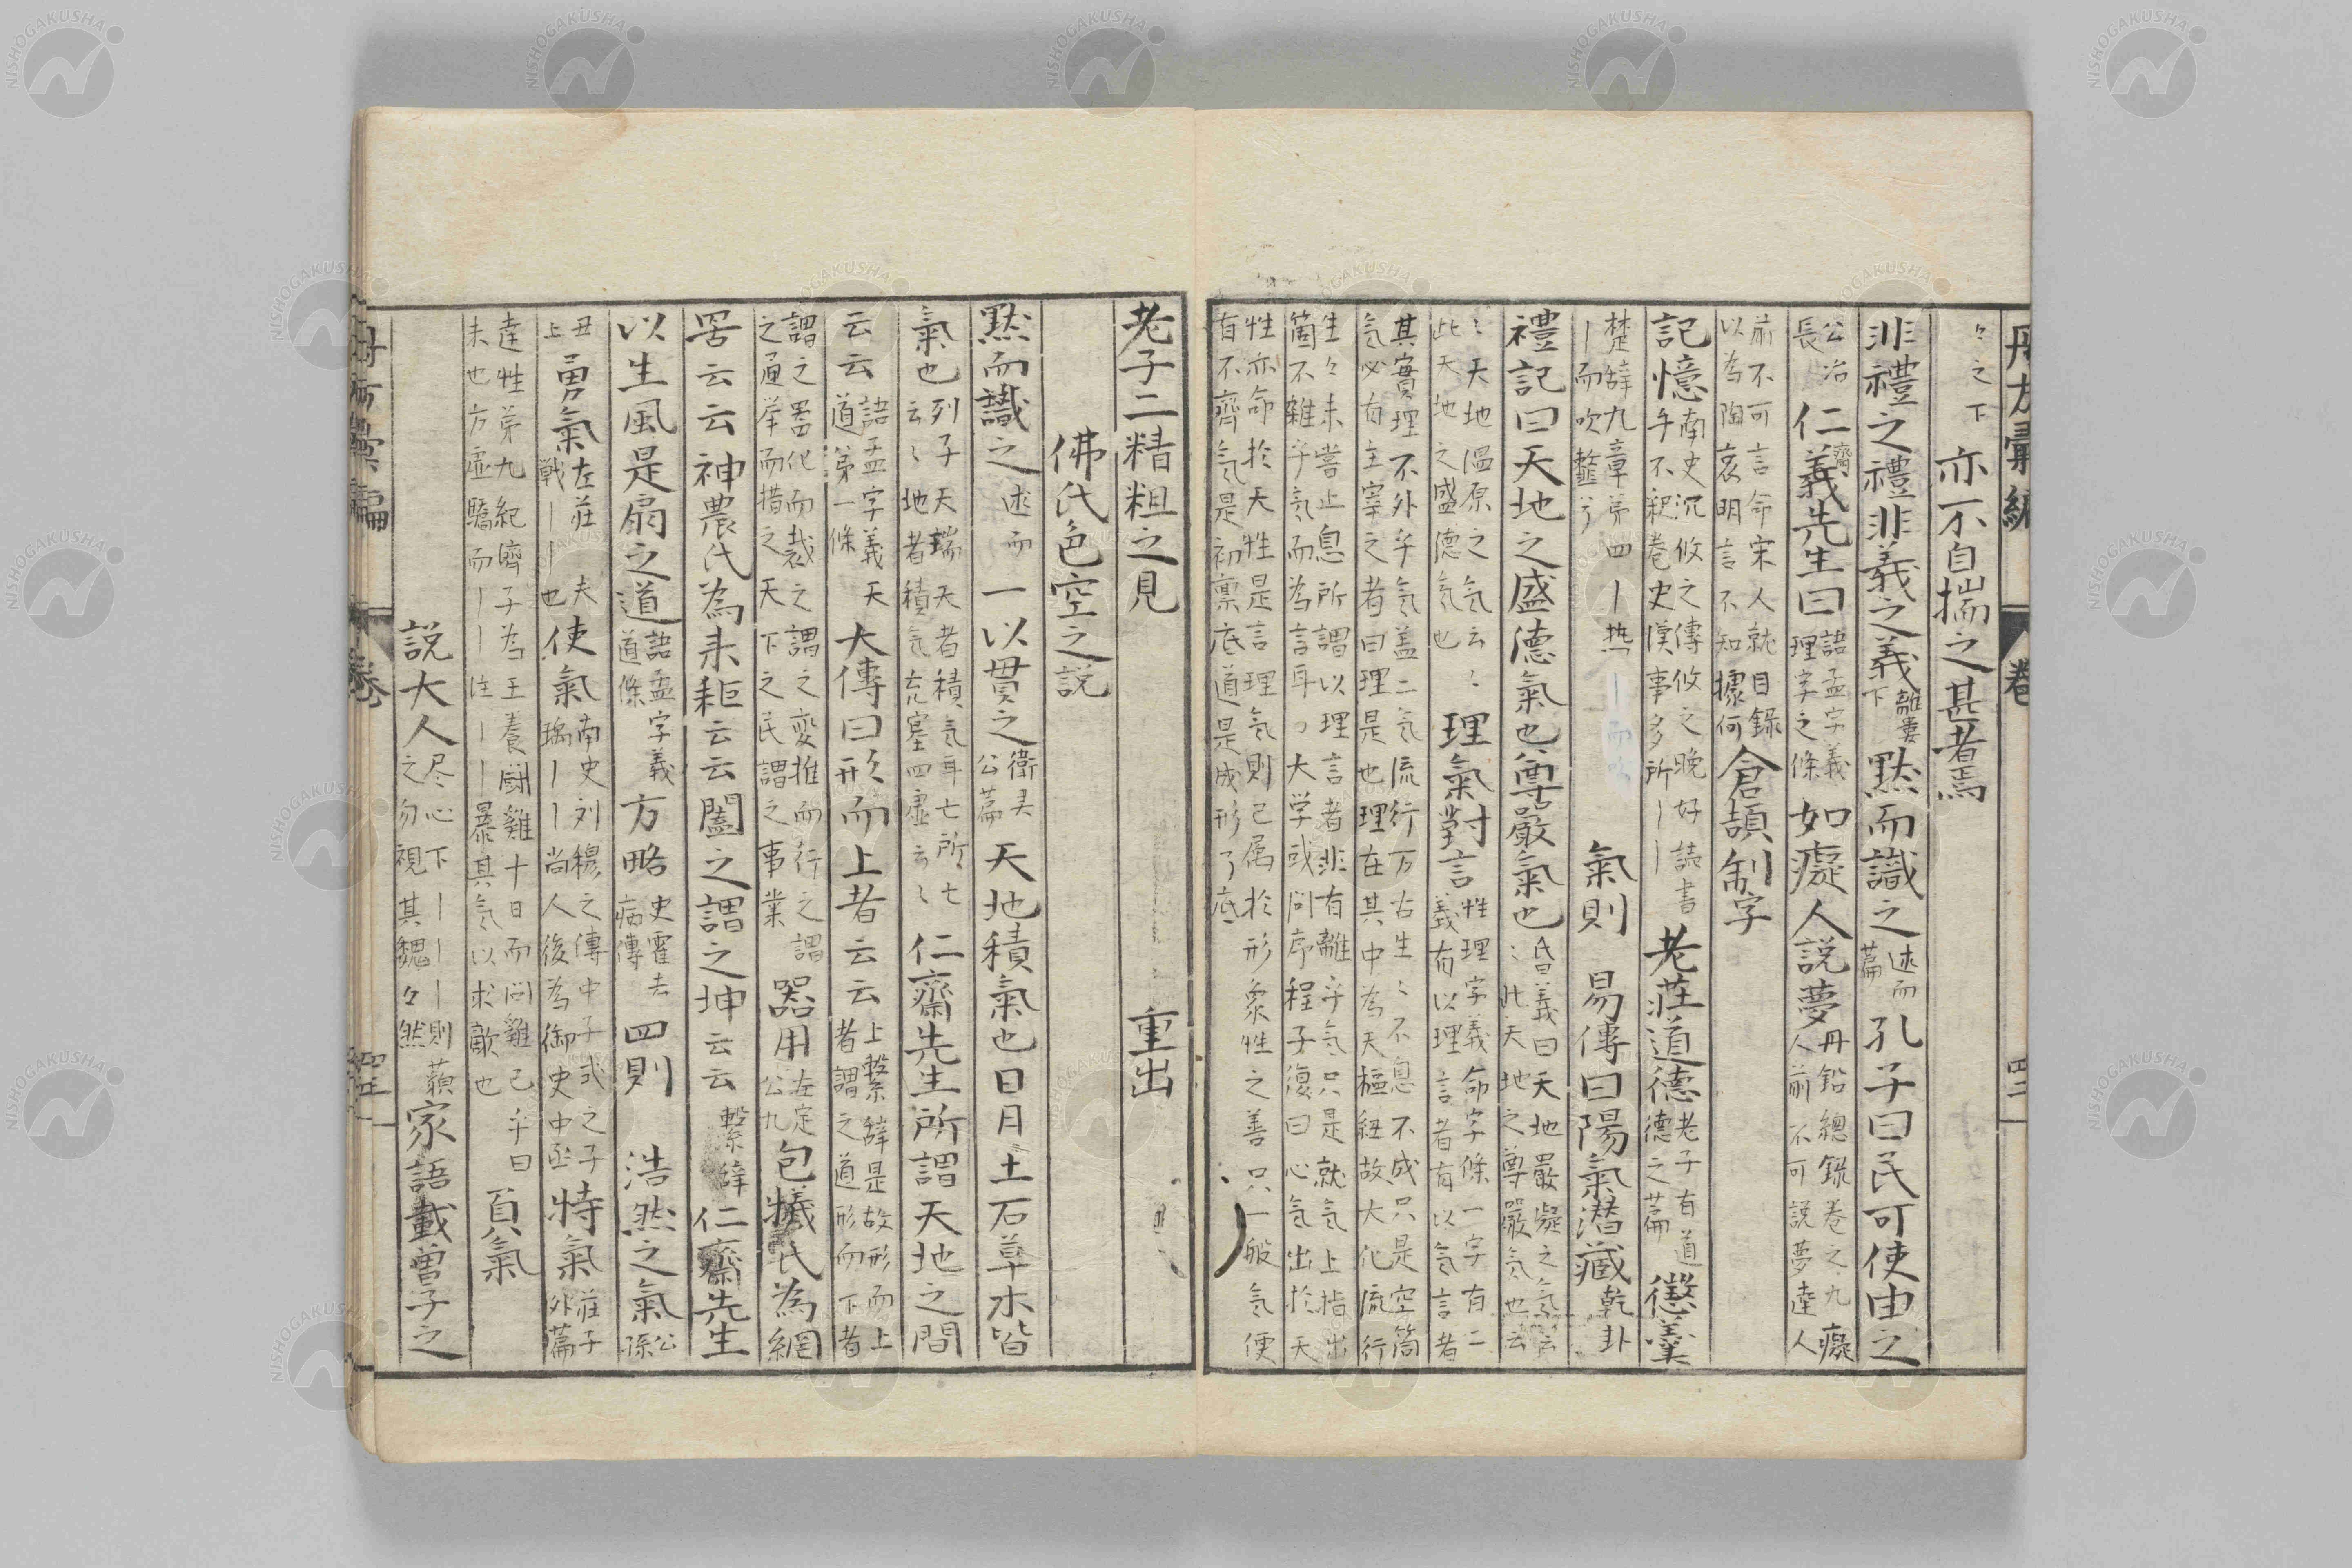 々之下亦不自揣之甚者焉
非禮之禮非義之義離婁下默而識之述而篇孔子曰民可使由之
公冶長仁齋先生曰語孟字義理字之條如癡人説夢丹鉛總録卷之九癡人前不可説夢達人
前不可言命宋人就目録以為陶哀明言不知據何倉頡制字
記憶南史沉攸之傳攸之晩好読書手不釈卷史漢事多所丨丨老莊道德老子有道德之篇懲羹
楚辞九章第四丨热丨而吹韲兮氣則易傳曰陽氣潜藏乾卦
禮記曰天地之盛德氣也尊嚴氣也昏義曰天地嚴凝之気云〻此天地之尊嚴気也云
〻天地温原之气云〻此天地之盛德気也理氣對言性理字義命字條一字有二義有以理言者有以気言者
其實理不外乎気盖二気流行万古生〻不息不成只是空箇気必有主宰之者曰理是也理在其中為天樞紐故大化流行
生々未嘗止息所謂以理言者非有離乎気只是就気上指出箇不雜乎気而為言耳〇大学或問序程子復曰心気出於天
性亦命於天性是言理気則已属於形象性之善只一般気便有不齊気是初禀底道是成形了底
老子二精粗之見　重出
佛氏色空之説
默而識之述而一以貫之衛灵公篇天地積氣也日月土石草木皆
氣也列子天瑞天者積気耳七所七云〻地者積気充塞四虚云〻仁齋先生所謂天地之間
云云語孟字義天道第一條大傳曰形而上者云云上繋辞是故形而上者謂之道形而下者
謂之噐化而裁之謂之変推而行之謂之通举而措之天下之民謂之事業器用左定公九包犧氏為網
罟云云神農氏為耒耟云云闔之謂之坤云云繋辞仁齋先生
以生風是扇之道語孟字義道條方略史霍去病傳四則浩然之氣公孫
丑上勇氣左莊戰丨丨也夫使氣南史刘穆之傳中子或之子瑀丨丨尚人後為御史中丞恃氣莊子外篇
達性第九紀渻子為王養闘雞十日而问雞已乎曰未也方虚驕而丨丨注丨丨暴其気以求敵也負氣
説大人尽心下丨丨丨則藐之勿視其魏々然家語載曽子之